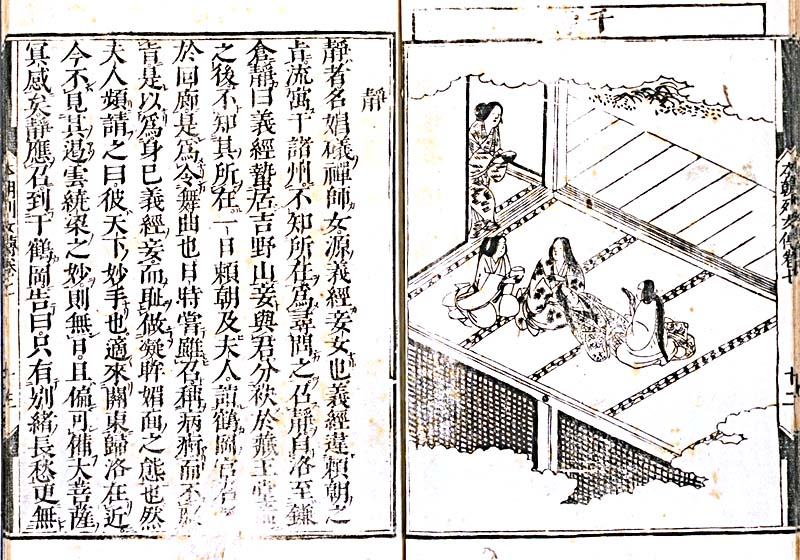 千
本朝列女傳卷七
廿二
靜
靜者名娼礒禪師女源義經妾女也義經違賴朝之
旨流寓于諸州不知所在爲尋問之召靜自洛至鎌
倉靜曰義經蟄居吉野山妾與君分袂於藏王堂
之後不知其所在一日賴朝及夫人詣鶴岡宮
於回廊是爲令舞曲也日時嘗雖召稱病痾而不
旨是以爲身已義經妾而耻做凝眸媚面之態也然
夫人頻請之曰彼天下妙手也適來關東歸洛在近
今不見其遏雲繞梁之妙則無日且偏可備大菩薩
冥感矣靜應召到于鶴岡告曰只有別緒長愁更無
本朝列女傳卷七